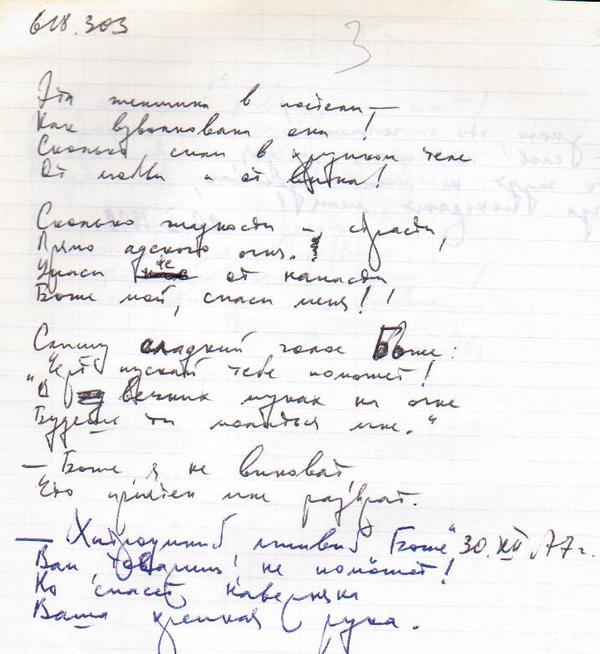 618.303
3
Эта женщина в постели –
Как взволнована она!
Сколько силы в хрупком теле
От любви и от вина!
Сколько жадности –, страсти,
Прямо адского огня.
Упаси же от напасти
Боже мой, спаси меня!!
Слышу сладкий голос Боже:
"Чёрт пускай тебе поможет!
"В вечных муках на огне
Будешь ты молиться мне."
– Боже, я не виноват,
Что приятен мне разврат.
– Хитроумный лживый Боже" 30.XII.77 г.
Вам, товарищ, не поможет!
Но спасёт наверняка
Ваша крепкая рука.